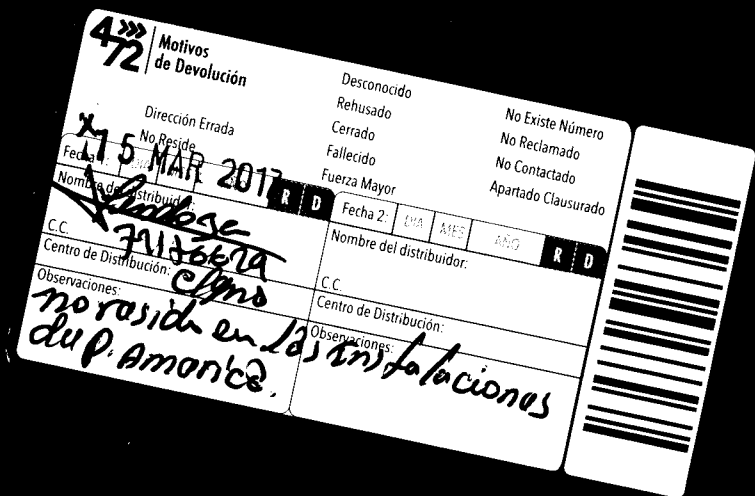 472
Motivos
de Devolución
Desconocido
Rehusado
Cerrado
Fallecido
Fuerza Mayor
No Existe Número
No Reclamado
No Contactado
Apartado Clausurado
Dirección Errada
No Reside
Fecha 1:
15 MAR 2017
R D
Nombre del distribuidor:
C.C.
Centro de Distribución:
Observaciones:
no reside en las instalaciones
du P. America.
Fecha 2: DIA MES AÑO R D
Nombre del distribuidor:
C.C.
Centro de Distribución:
Observaciones: